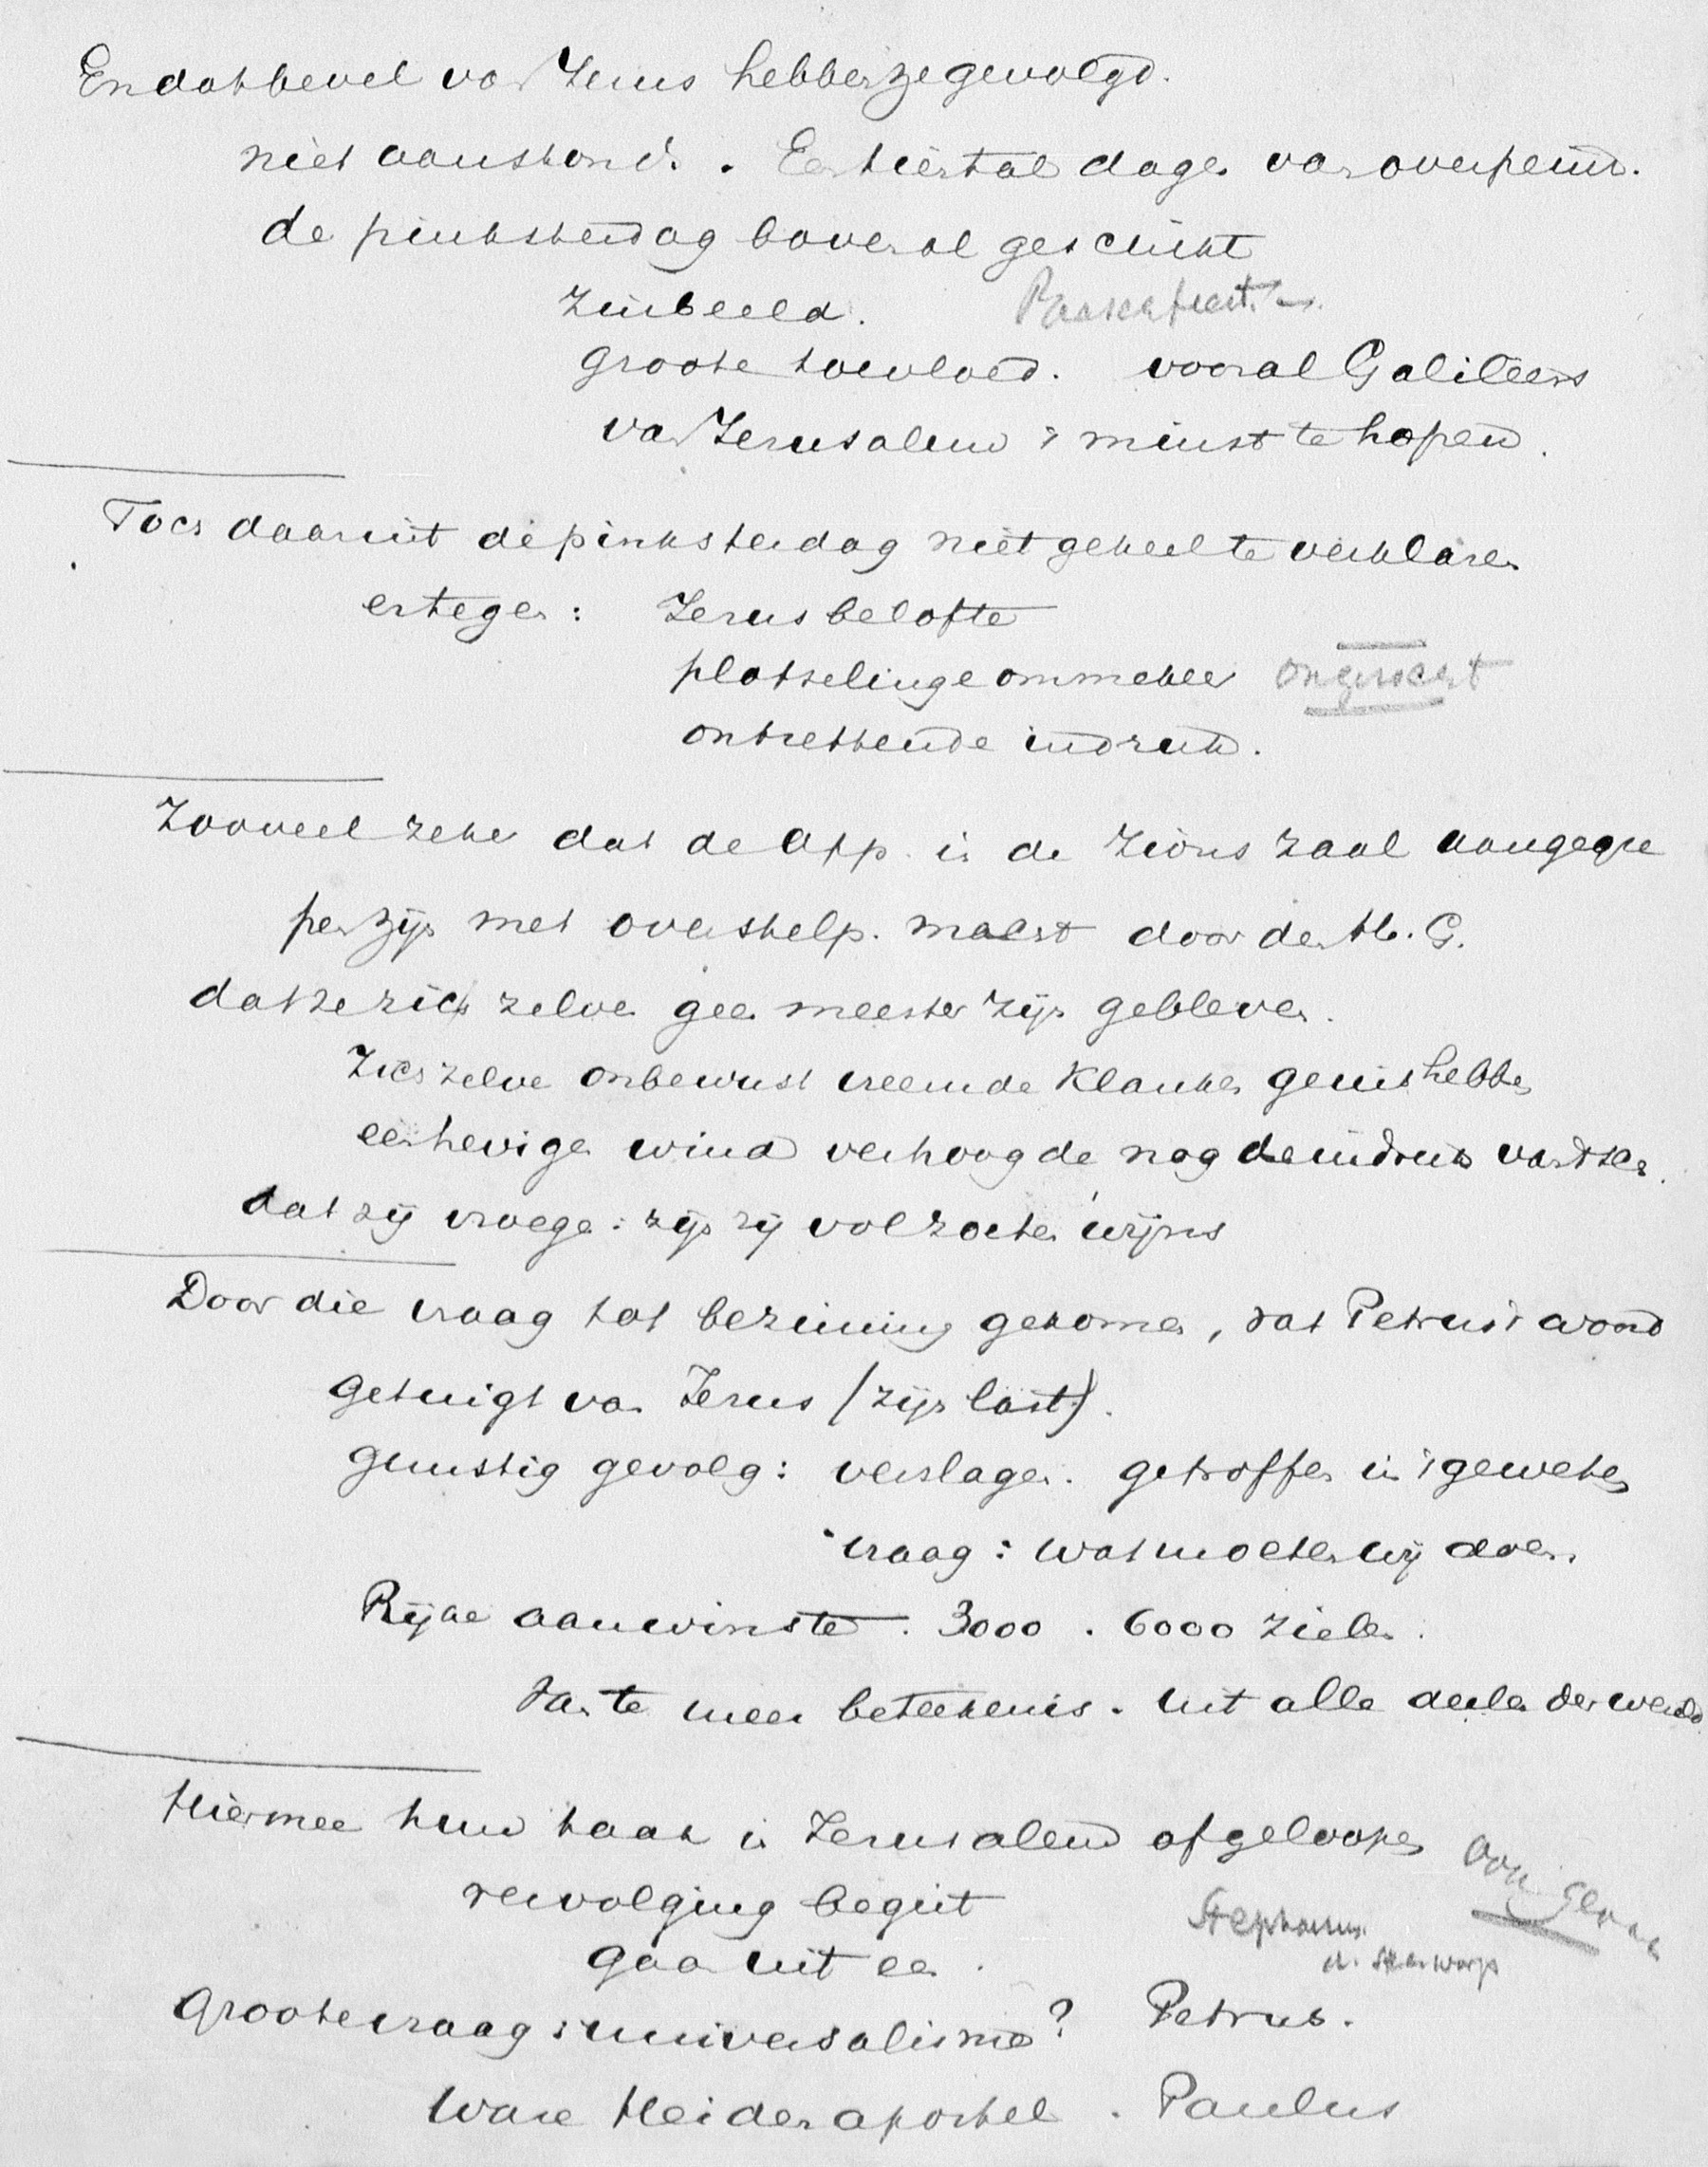 En dat bevel van Jezus hebben ze gevolgd.
niet aanstonds. Een tiental dagen van overpeinz.
de pinksterdag bovenal geschikt
zinbeeld. Paaschfeest.
groote toevloed. vooral Galileers
van Jerusalem 't minst te hopen.
Toch daaruit de pinksterdag niet geheel te verklaren
ertegen: Jezus belofte
plotselinge ommekeer ongezocht
ontzettende indruk.
Zooveel zeker dat de app. in de Zions zaal aangegre
pen zijn met overstelp. macht door den H. G.
dat ze zich zelve geen meester zijn gebleven.
Zich zelve onbewust vreemde klanken geuit hebben
een hevige wind verhoogde nog de indruk
dat zij vroegen: zijn zij vol zoeten wijns
Door die vraag tot bezinning gekomen, dat Petrus 't woord
getuigt van Jezus (zijn last).
gunstig gevolg: verslagen. getroffen in 't geweten
vraag: wat moeten wij doen.
Rijke aanwinste. 3000. 6000 zielen.
van te meer beteekenis. Uit alle deelen der wereld
Hiermee hun taak in Jerusalem afgeloopen
vervolging begint Stephanus
gaan uit een.
Groote vraag: universalisme? Petrus.
Ware Heidenapostel. Paulus